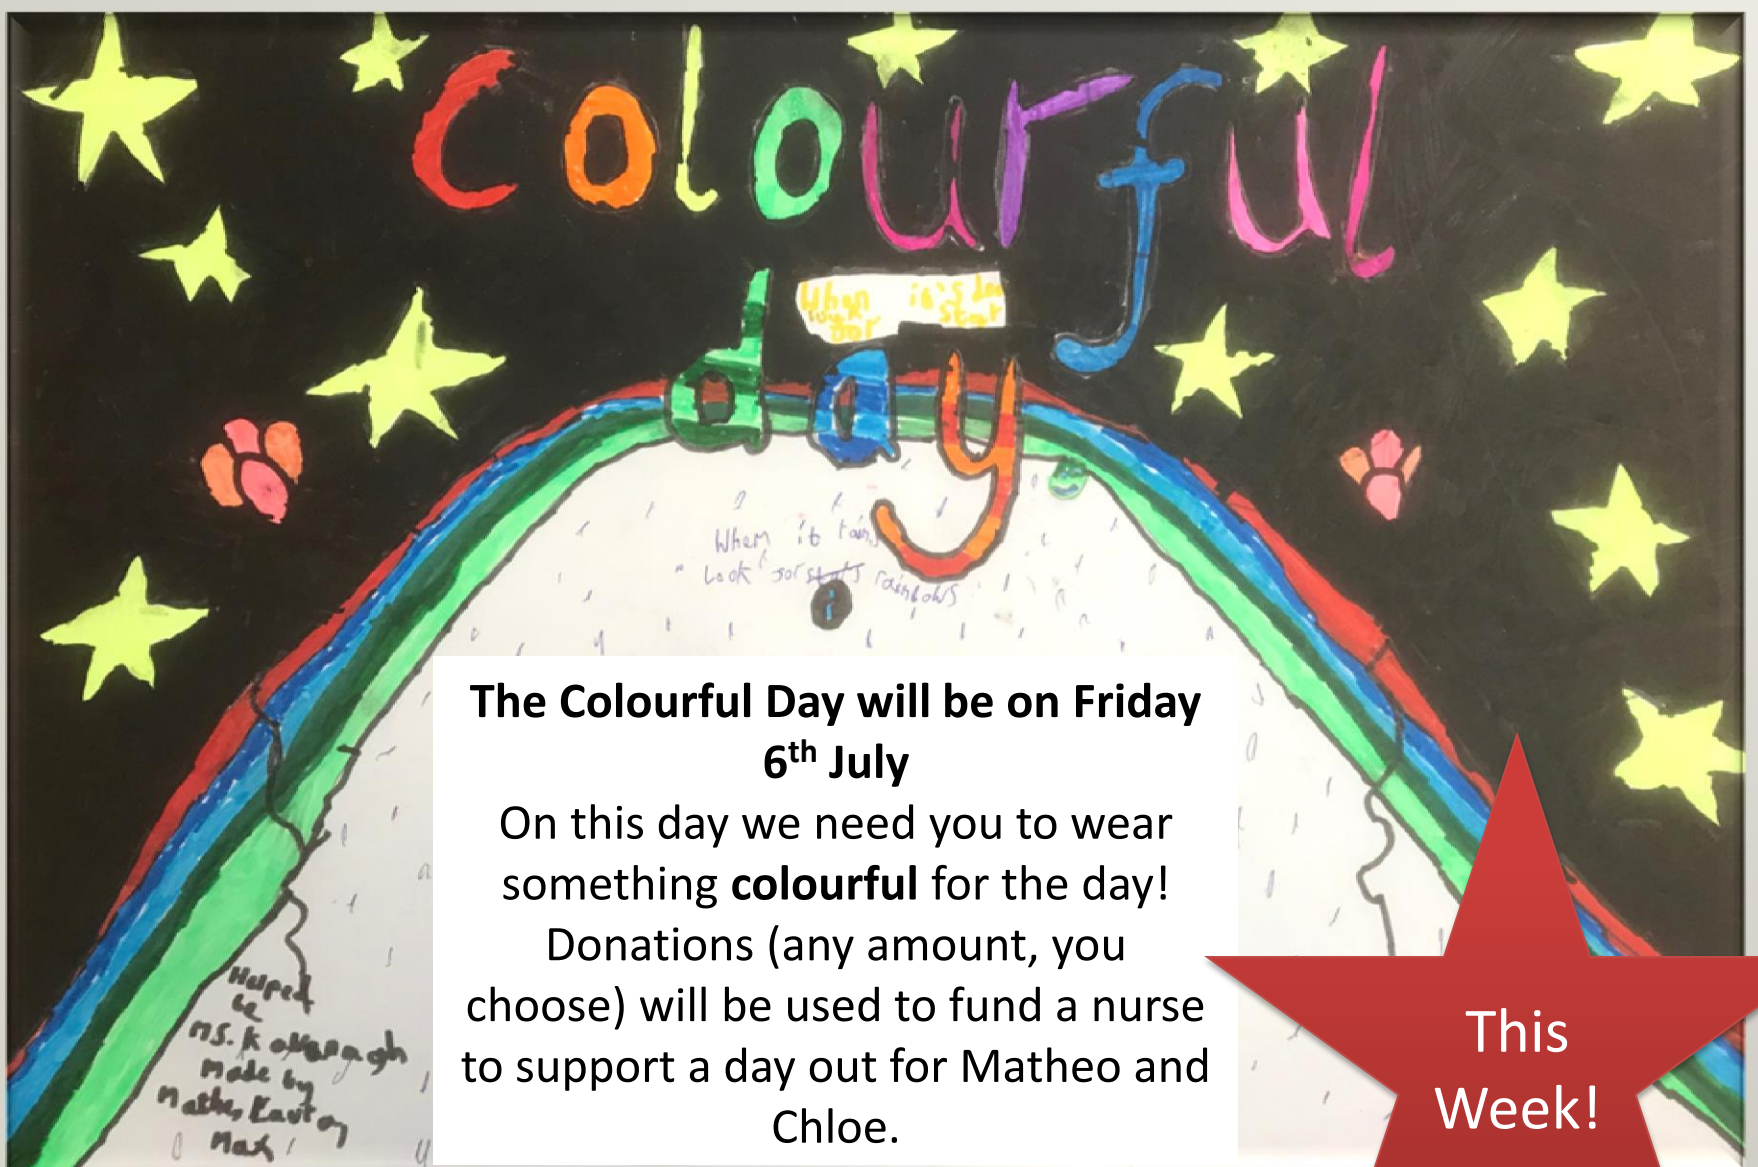 Colourful
When it's da
look star
for
day
When it rains
Look for stars rainbows
The Colourful Day will be on Friday
6th July
On this day we need you to wear
something colourful for the day!
Donations (any amount, you
choose) will be used to fund a nurse
to support a day out for Matheo and
Chloe.
This
Week!
Helped
be
MS. Kavanagh
Made by